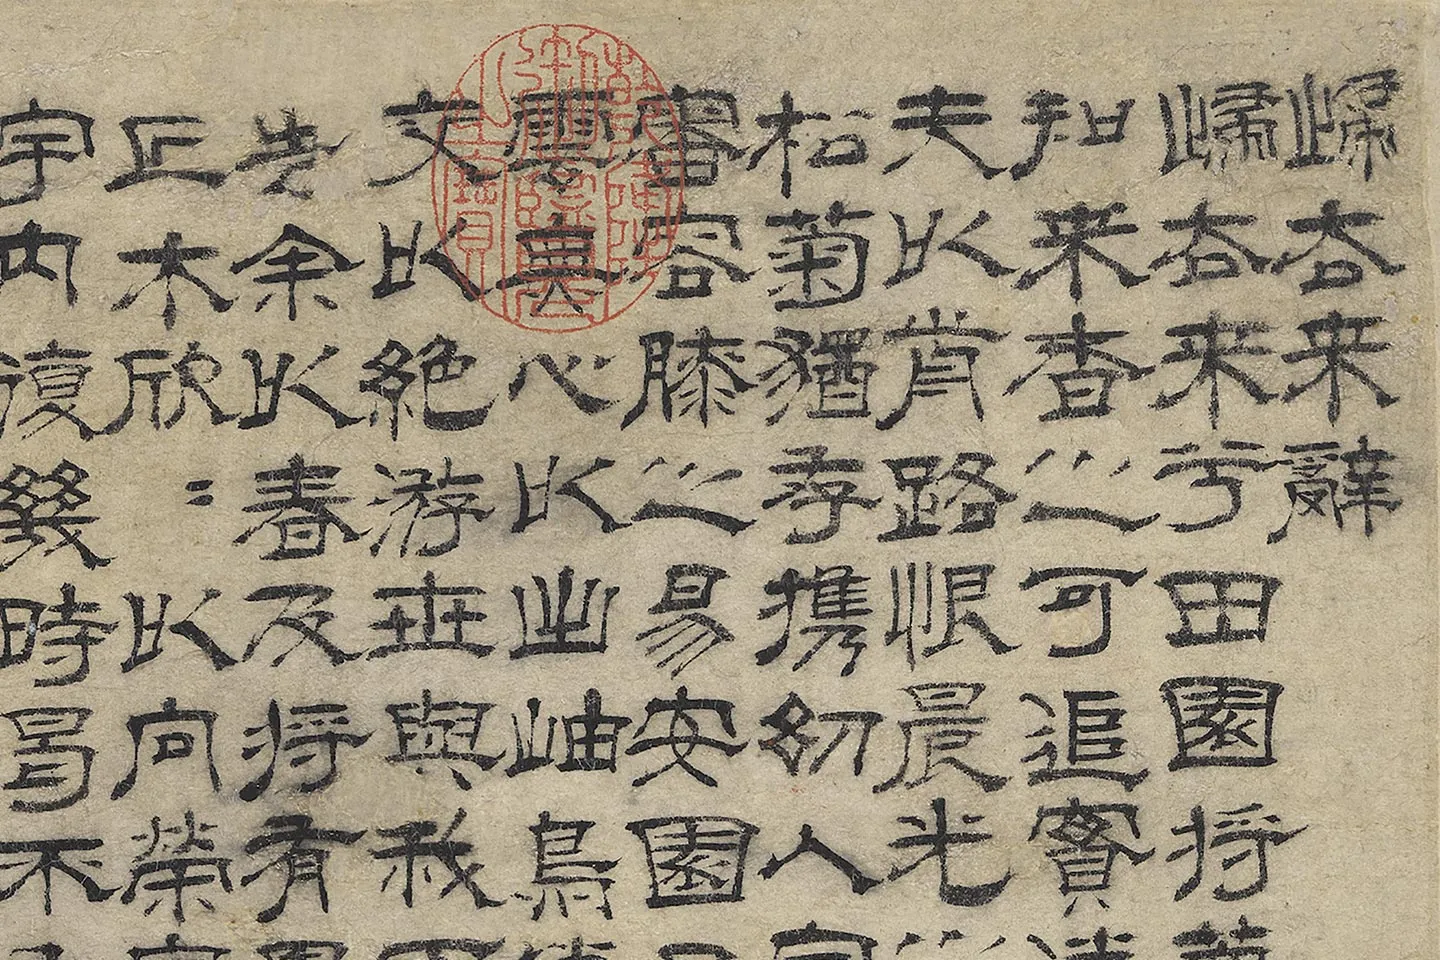 歸去來辭
歸去來兮田園將
知來者之可追實
夫以前路恨晨光之
松菊猶存携幼入
審容膝之易安園
雲無心以出岫鳥
交以絕游世與我
告余以春及將有
丘木欣〻以向榮
宇內復幾時曷不
乾隆御覽之寶